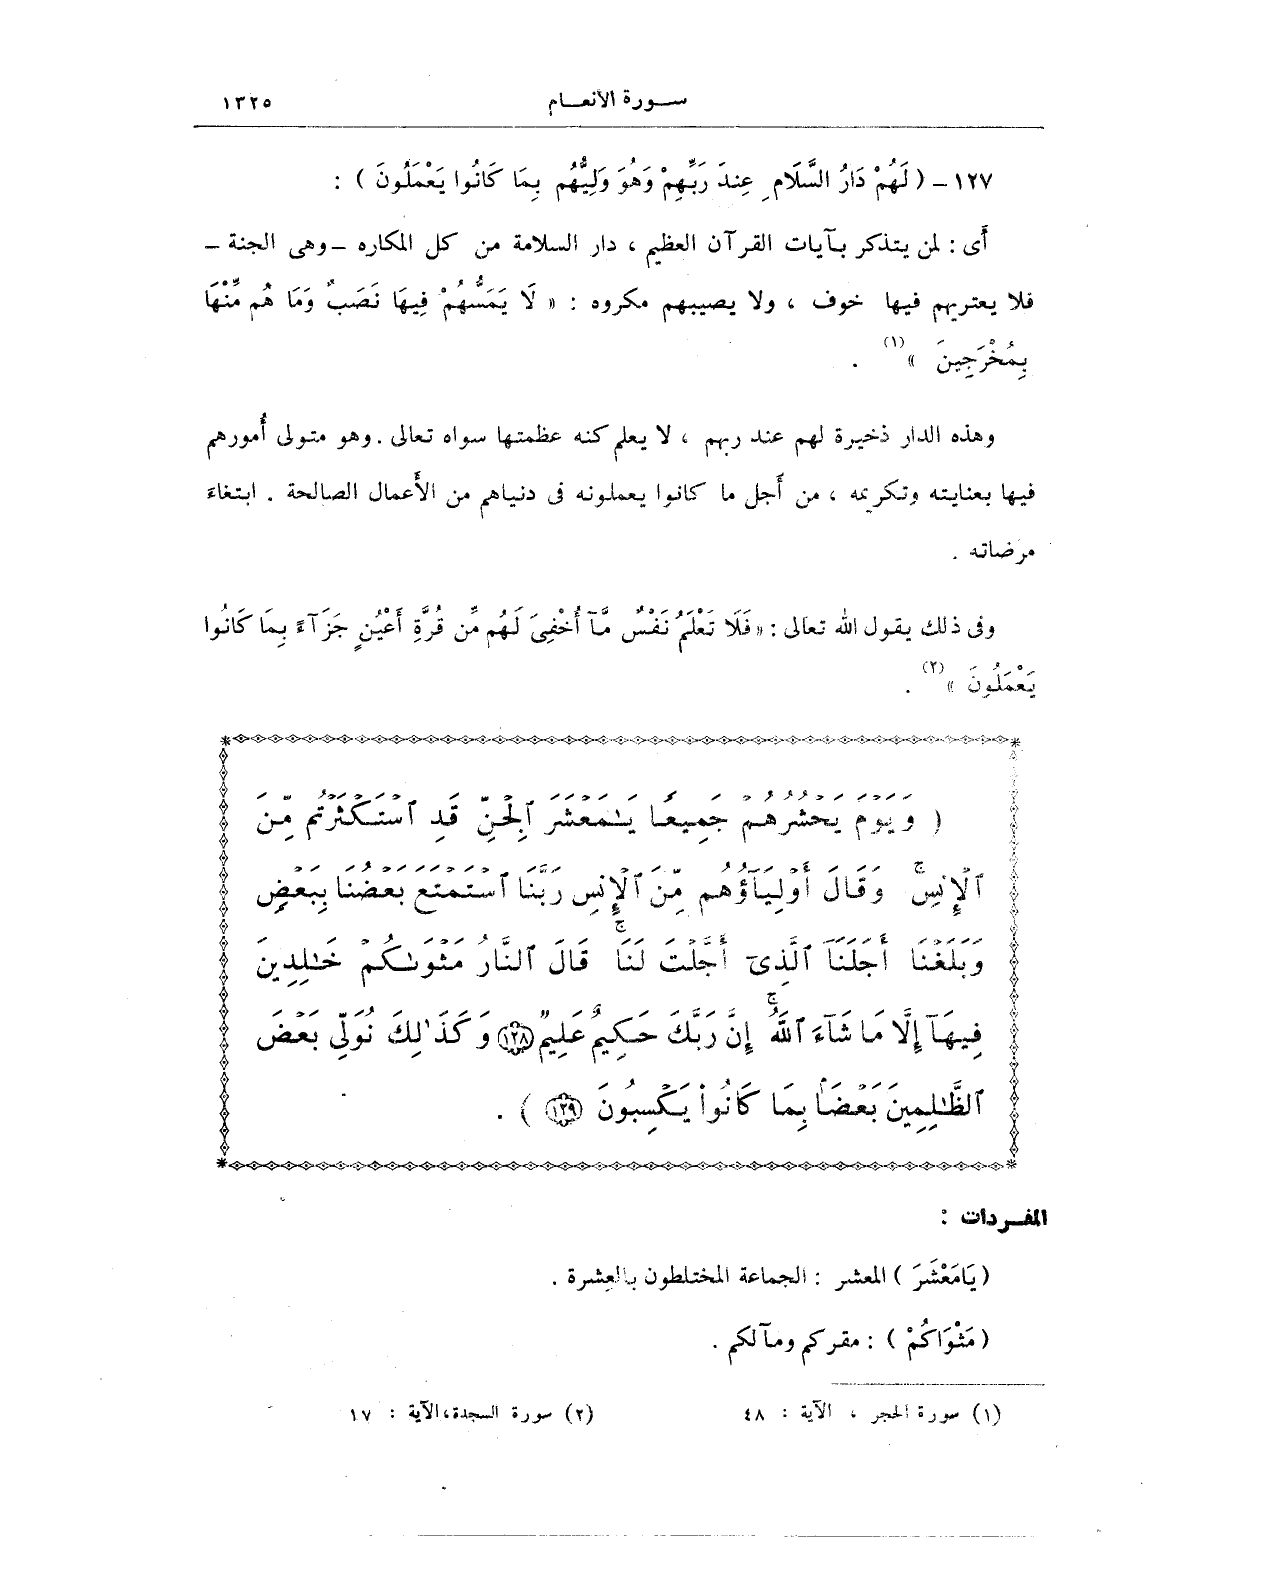 سورة الأنعام ١٣٢٥
١٢٧ – ( لَهُمْ دَارُ السَّلَامِ عِندَ رَبِّهِمْ وَهُوَ وَلِيُّهُم بِمَا كَانُوا يَعْمَلُونَ ) :
أَى : لمن يتذكر بآيات القرآن العظيم ، دار السلامة من كل المكاره – وهى الجنة –
فلا يعتريهم فيها خوف ، ولا يصيبهم مكروه : « لَا يَمَسُّهُمْ فِيهَا نَصَبٌ وَمَا هُم مِّنْهَا
بِمُخْرَجِينَ » (١) .
وهذه الدار ذخيرة لهم عند ربهم ، لا يعلم كنه عظمتها سواه تعالى . وهو متولى أُمورهم
فيها بعنايته وتكريمه ، من أَجل ما كانوا يعملونه فى دنياهم من الأَعمال الصالحة . ابتغاءَ
مرضاته .
وفى ذلك يقول الله تعالى : « فَلَا تَعْلَمُ نَفْسٌ مَّآ أُخْفِىَ لَهُم مِّن قُرَّةِ أَعْيُنٍ جَزَآءً بِمَا كَانُوا
يَعْمَلُونَ » (٢) .
( وَيَوْمَ يَحْشُرُهُمْ جَمِيعًا يَـٰمَعْشَرَ ٱلْجِنِّ قَدِ ٱسْتَكْثَرْتُم مِّنَ
ٱلْإِنسِ ۖ وَقَالَ أَوْلِيَآؤُهُم مِّنَ ٱلْإِنسِ رَبَّنَا ٱسْتَمْتَعَ بَعْضُنَا بِبَعْضٍ
وَبَلَغْنَآ أَجَلَنَا ٱلَّذِىٓ أَجَّلْتَ لَنَا ۚ قَالَ ٱلنَّارُ مَثْوَىٰكُمْ خَـٰلِدِينَ
فِيهَآ إِلَّا مَا شَآءَ ٱللَّهُ ۗ إِنَّ رَبَّكَ حَكِيمٌ عَلِيمٌ ١٢٨ وَكَذَٰلِكَ نُوَلِّى بَعْضَ
ٱلظَّـٰلِمِينَ بَعْضًۢا بِمَا كَانُوا۟ يَكْسِبُونَ ١٢٩ ) .
المفردات :
( يَامَعْشَرَ ) المعشر : الجماعة المختلطون بالعِشرة .
( مَثْوَاكُمْ ) : مقركم ومآلكم .
(١) سورة الحجر ، الآية : ٤٨ (٢) سورة السجدة، الآية : ١٧